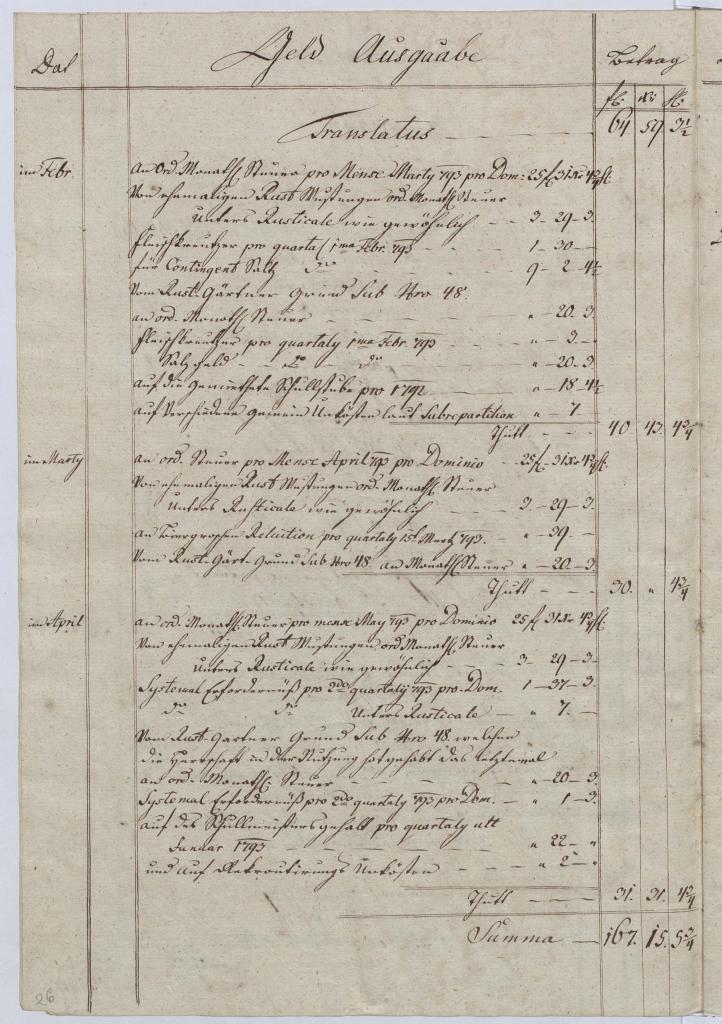 Dat
Geld Ausgaabe
Betrag
fl. Xr. ₰.
Translatus — — — 64 59 3½
im Febr.
an Ord. Monathl. Steuer pro Mense Marty 793 pro Dom: 25 fl. 31 Xr 4¾ ₰.
Von ehemaligen Rust. Wustungen ord. Monathl. Steuer
Unters Rusticale wie gewöhnlich — 3 - 29 - 3.
fleischkreutzer pro quartal 1ma Febr. 793 - - 1 - 30 -
für Contingent Saltz do - - 9 - 2 - 4½
Vom Rust. Gärtner Grund Sub Nro 48.
an ord. Monathl. Steuer - - - " - 20 - 3.
fleischkreutzer pro quartaly 1ma Febr. 793 - " - 3 -
Saltz geld - do do - " - 20 - 3
auf die gemiethete Schullstube pro 1792 - " - 18 - 4½
auf verschiedene gemein Unkösten laut Subrepartition " - 7 -
Thutt - - 40 43. 4¾
im Marty
an ord. Steuer pro Mense April 793 pro Dominio - 25 fl - 31 Xr 4¾ ₰.
Von ehemaligen Rust. Wustungen ord. Monathl. Steuer
Unters Rusticale wie gewöhnlich - 3 - 29 - 3.
an Reluition pro quartaly Mertz 793. - " - 39 -
Vom Rust. Gärt. Grund Sub Nro 48. an Monathl. Steuer " - 20 - 3
Thutt - - - 30. " 4¾
im April
an ord. Monathl. Steuer pro mense May 793 pro Dominio 25 fl 31 Xr 4¾ ₰.
Von ehemaligen Rust. Wustungen ord. Monathl. Steuer
Unters Rusticale wie gewöhnlich - - 3 - 29 - 3
Systemal Erfordernüß pro 2do quartaly 793 pro Dom. 1 - 37 - 3.
do do Unters Rusticale - " 7. -
Vom Rust. Gärtner Grund Sub Nro 48. welchen
die Herrschaft in der Nutzung hat gehabt das letztemal
an ord. Monathl. Steuer - - " - 20 - 3.
Systemal Erfordernüß pro 2do quartaly 793 pro Dom. - " 1 - 3.
auf des Schullmeisters gehalt pro quartaly ult
Januar 1793 - - - " 22 - "
und auf Rekroutirungs Unkösten - - " 2 - "
Thutt - - - 31. 31. 4¾
Summa — 167. 15. 5¾
26